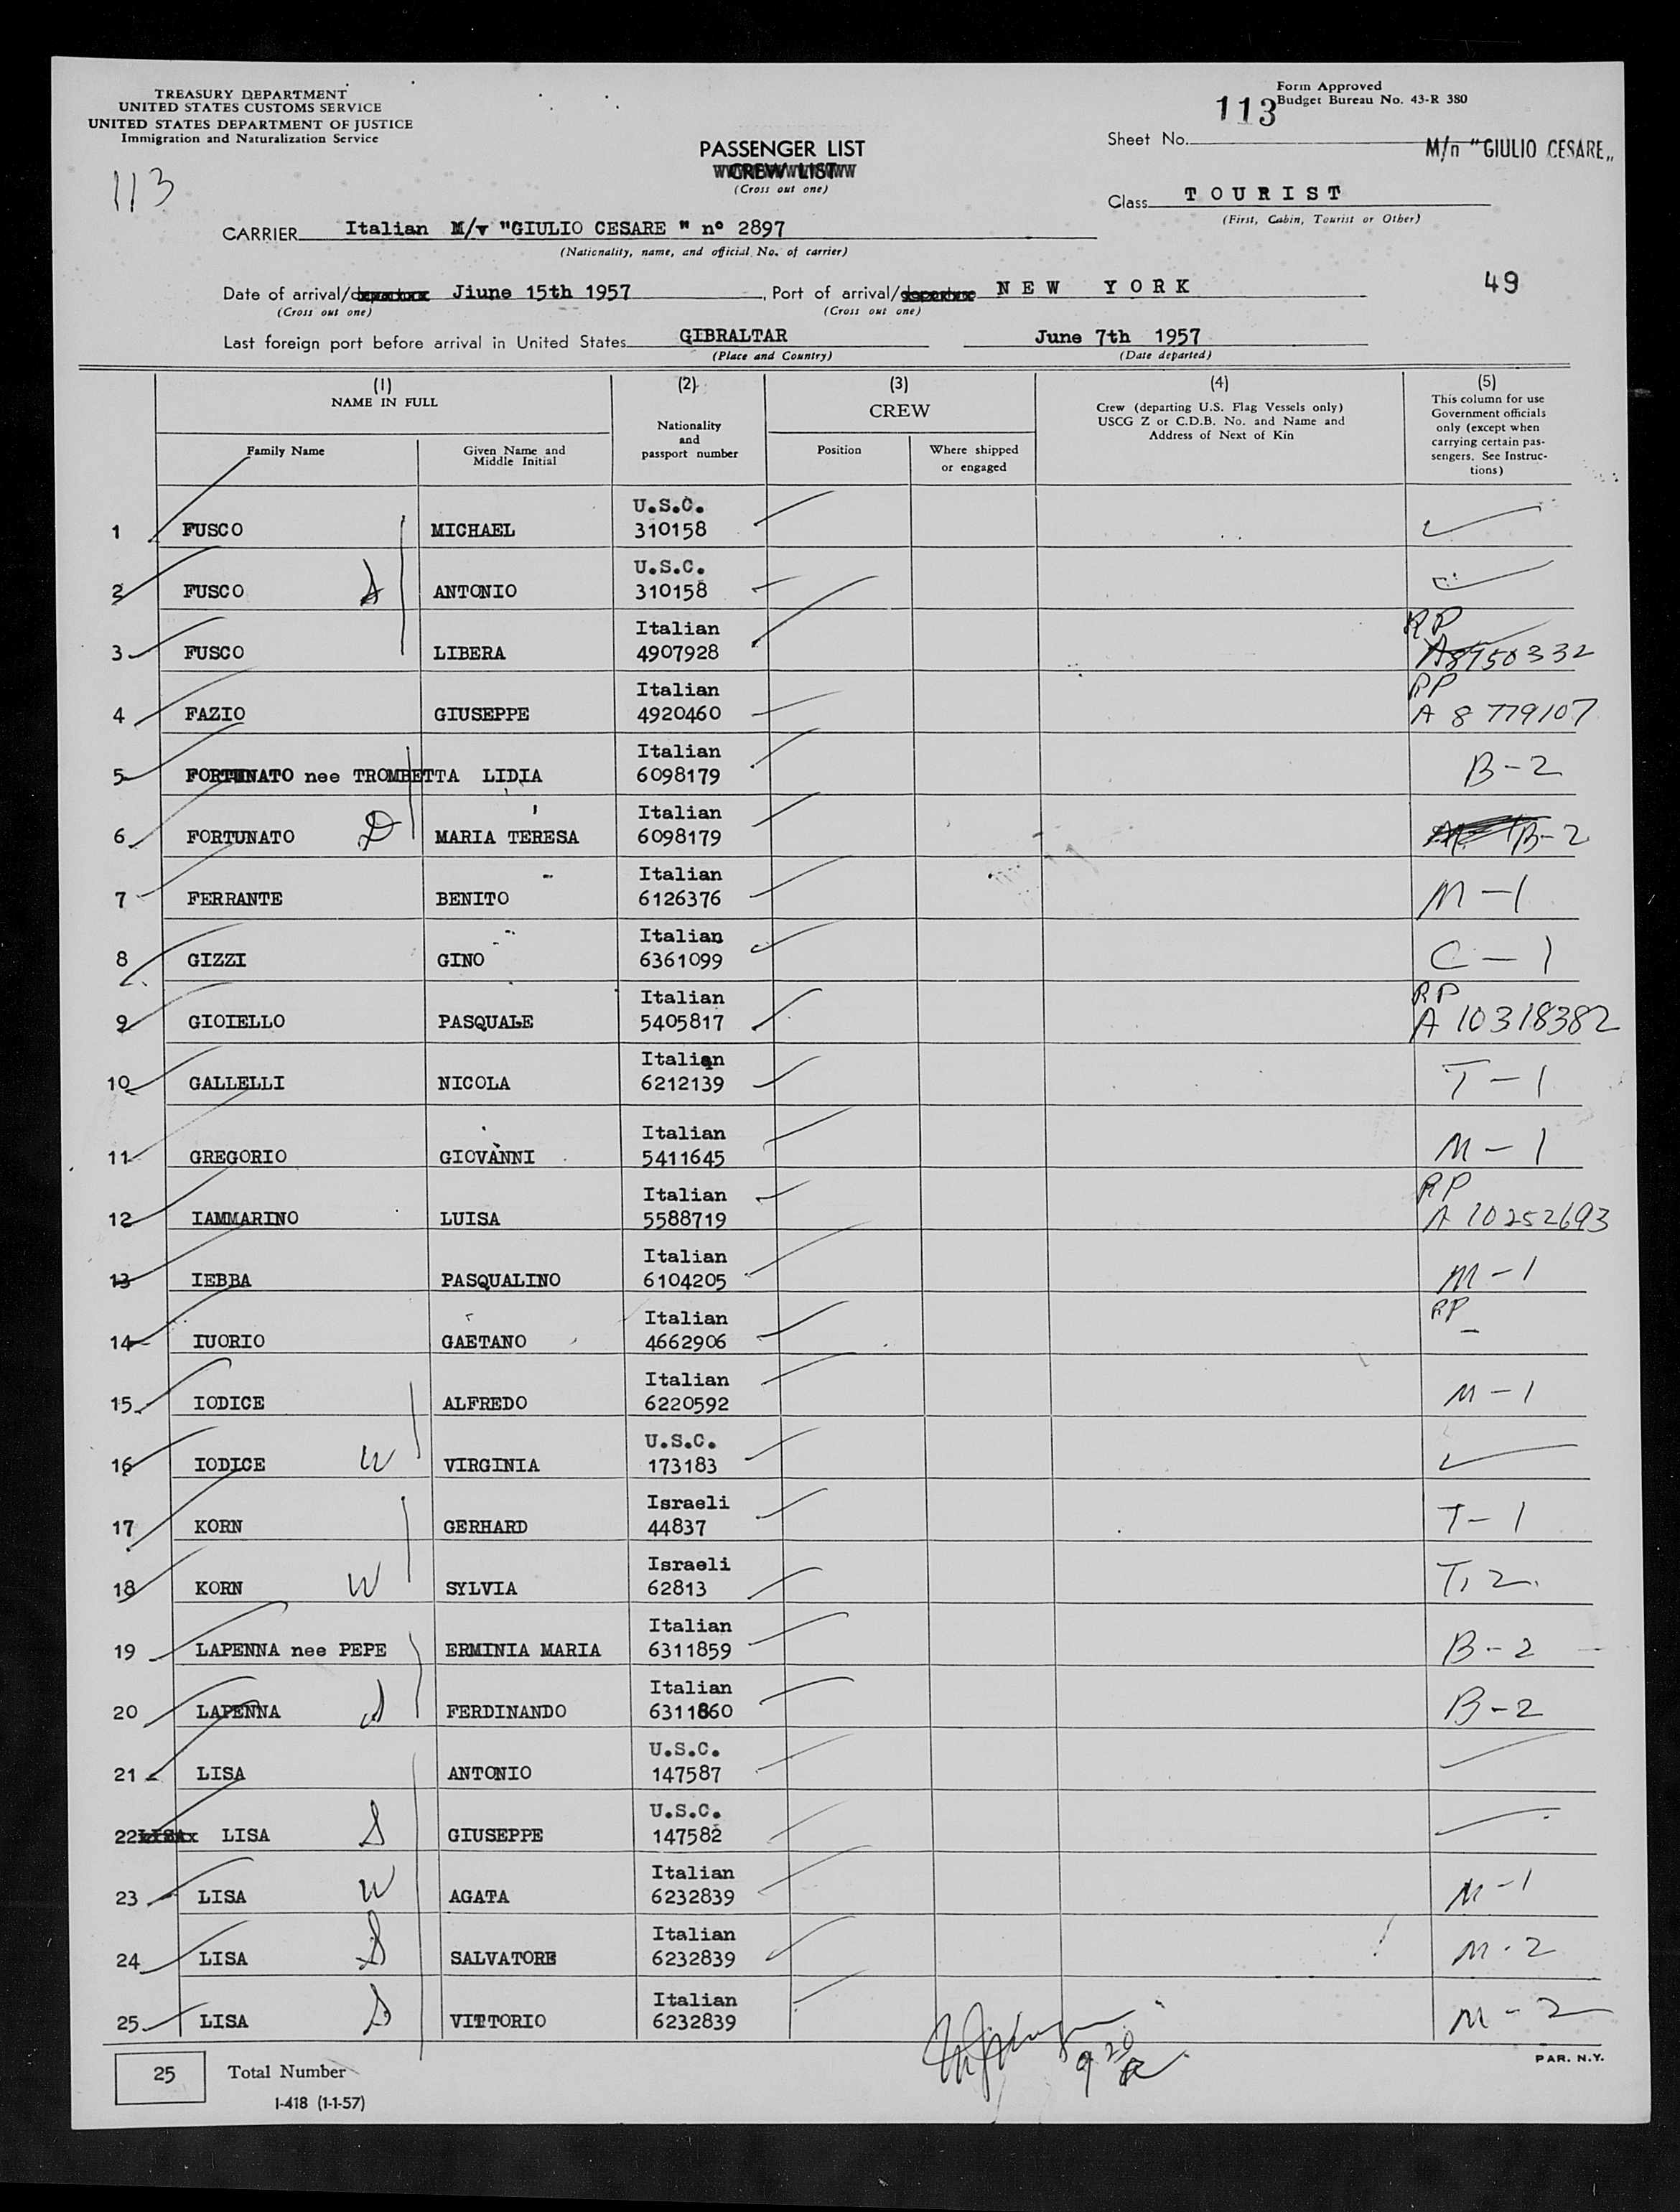 TREASURY DEPARTMENT
UNITED STATES CUSTOMS SERVICE
UNITED STATES DEPARTMENT OF JUSTICE
Immigration and Naturalization Service
113
Form Approved
Budget Bureau No. 43-R 380
113
Sheet No.
M/n "GIULIO CESARE"
PASSENGER LIST
CREW LIST
(Cross out one)
Class TOURIST
(First, Cabin, Tourist or Other)
CARRIER Italian M/v "GIULIO CESARE " n° 2897
(Nationality, name, and official No. of carrier)
Date of arrival/ Jiune 15th 1957, Port of arrival/ NEW YORK
49
(Cross out one) (Cross out one)
Last foreign port before arrival in United States GIBRALTAR June 7th 1957
(Place and Country) (Date departed)
(1) (2) (3) (4) (5)
NAME IN FULL
Family Name
Given Name and Middle Initial
Nationality and passport number
CREW
Position
Where shipped or engaged
Crew (departing U.S. Flag Vessels only)
USCG Z or C.D.B. No. and Name and
Address of Next of Kin
This column for use
Government officials
only (except when
carrying certain pas-
sengers. See Instruc-
tions)
U.S.C.
1 FUSCO MICHAEL 310158
U.S.C.
2 FUSCO ANTONIO 310158
Italian RP
3 FUSCO LIBERA 4907928 A8750332
Italian RP
4 FAZIO GIUSEPPE 4920460 A 8 779107
Italian
5 FORTUNATO nee TROMBETTA LIDIA 6098179 B-2
Italian
6 FORTUNATO D MARIA TERESA 6098179 B-2
Italian
7 FERRANTE BENITO 6126376 M-1
Italian
8 GIZZI GINO 6361099 C-1
Italian RP
9 GIOIELLO PASQUALE 5405817 A 10318382
Italian
10 GALLELLI NICOLA 6212139 T-1
Italian
11 GREGORIO GIOVANNI 5411645 M-1
Italian RP
12 IAMMARINO LUISA 5588719 A 10252693
Italian
13 IEBBA PASQUALINO 6104205 M-1
Italian RP
14 IUORIO GAETANO 4662906 -
Italian
15 IODICE ALFREDO 6220592 M-1
U.S.C.
16 IODICE W VIRGINIA 173183
Israeli
17 KORN GERHARD 44837 T-1
Israeli
18 KORN W SYLVIA 62813 T-2
Italian
19 LAPENNA nee PEPE ERMINIA MARIA 6311859 B-2
Italian
20 LAPENNA S FERDINANDO 6311860 B-2
U.S.C.
21 LISA ANTONIO 147587
U.S.C.
22 LISA S GIUSEPPE 147582
Italian
23 LISA W AGATA 6232839 M-1
Italian
24 LISA S SALVATORE 6232839 M-2
Italian
25 LISA S VITTORIO 6232839 M-2
9 20
25 Total Number
PAR. N.Y.
I-418 (1-1-57)